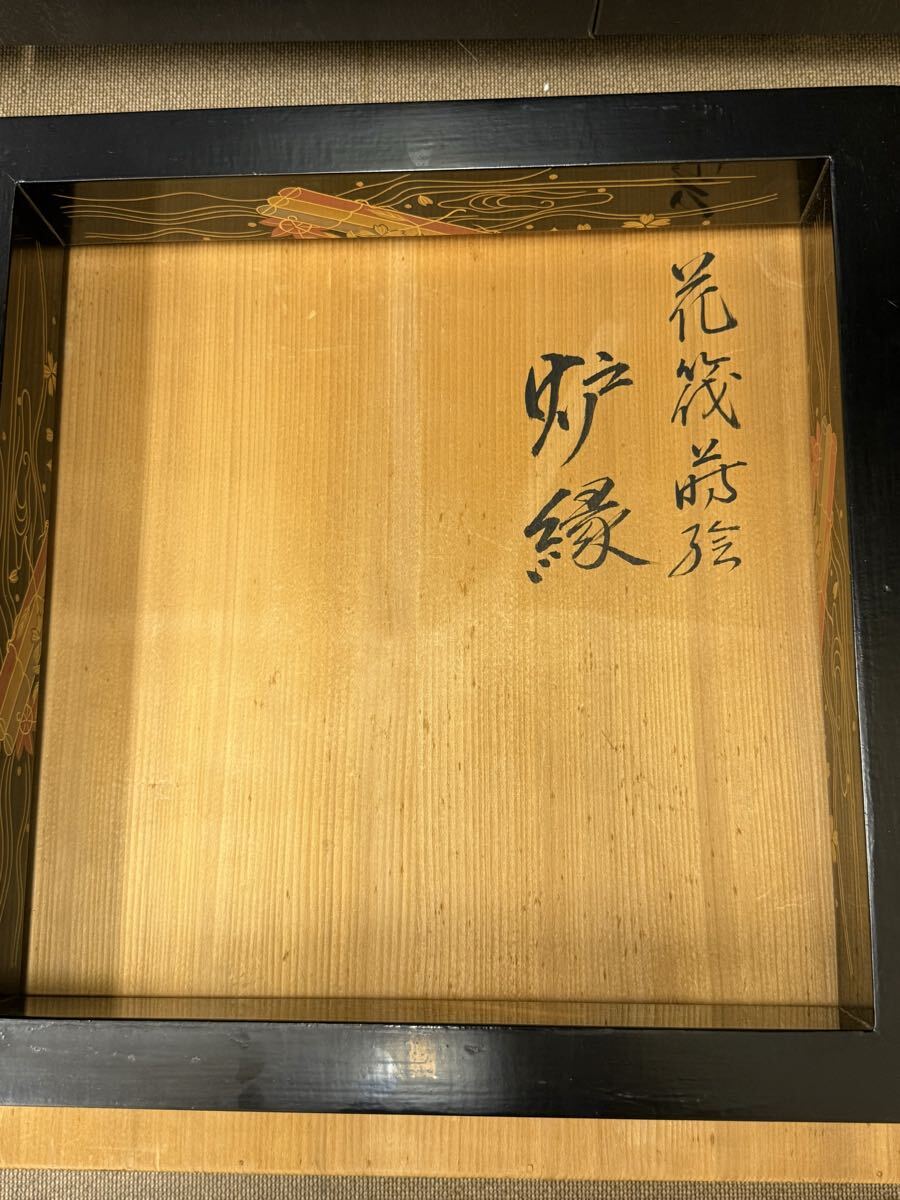 花筏蒔絵
炉縁